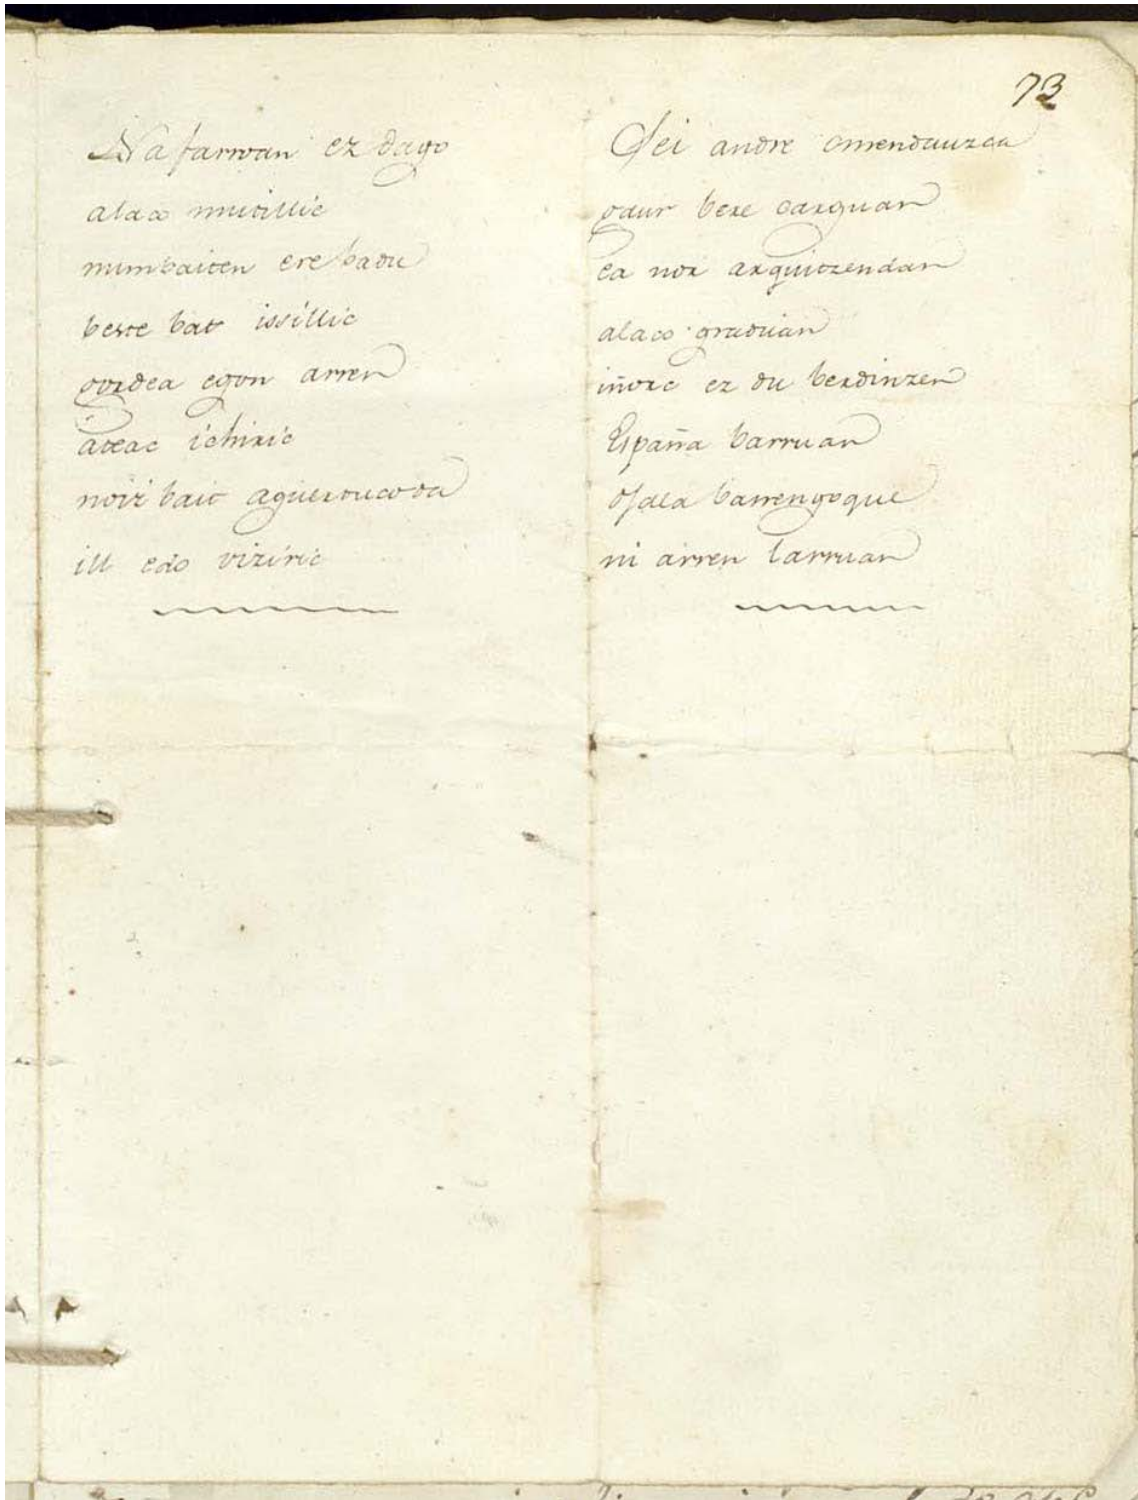 73
Nafarroan ez dago
alaco mutillic
numbaiten ere badu
beste bat issillic
gordea egon arren
ateac ichiric
noiz bait aguertucoda
ill edo viziric
Sei andre omendauzca
gaur bere carguan
ea nor arguitzendan
alaco graduan
iñorc ez du berdinzen
España barruan
ojala banengoque
ni arren larruan